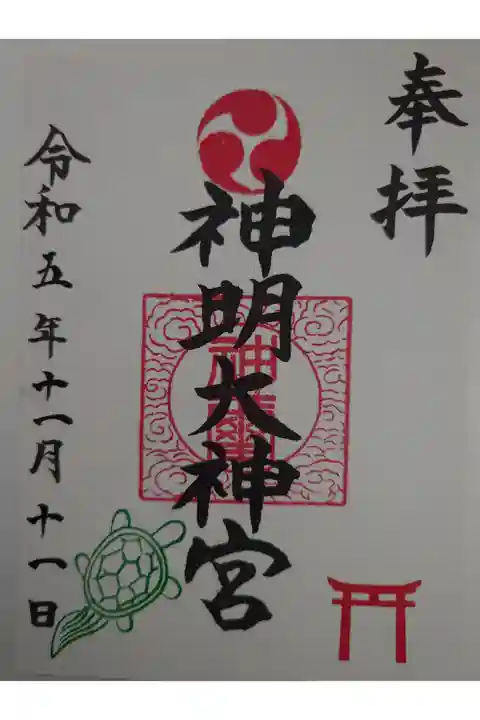 奉拝
神明大神宮
令和五年十一月十一日